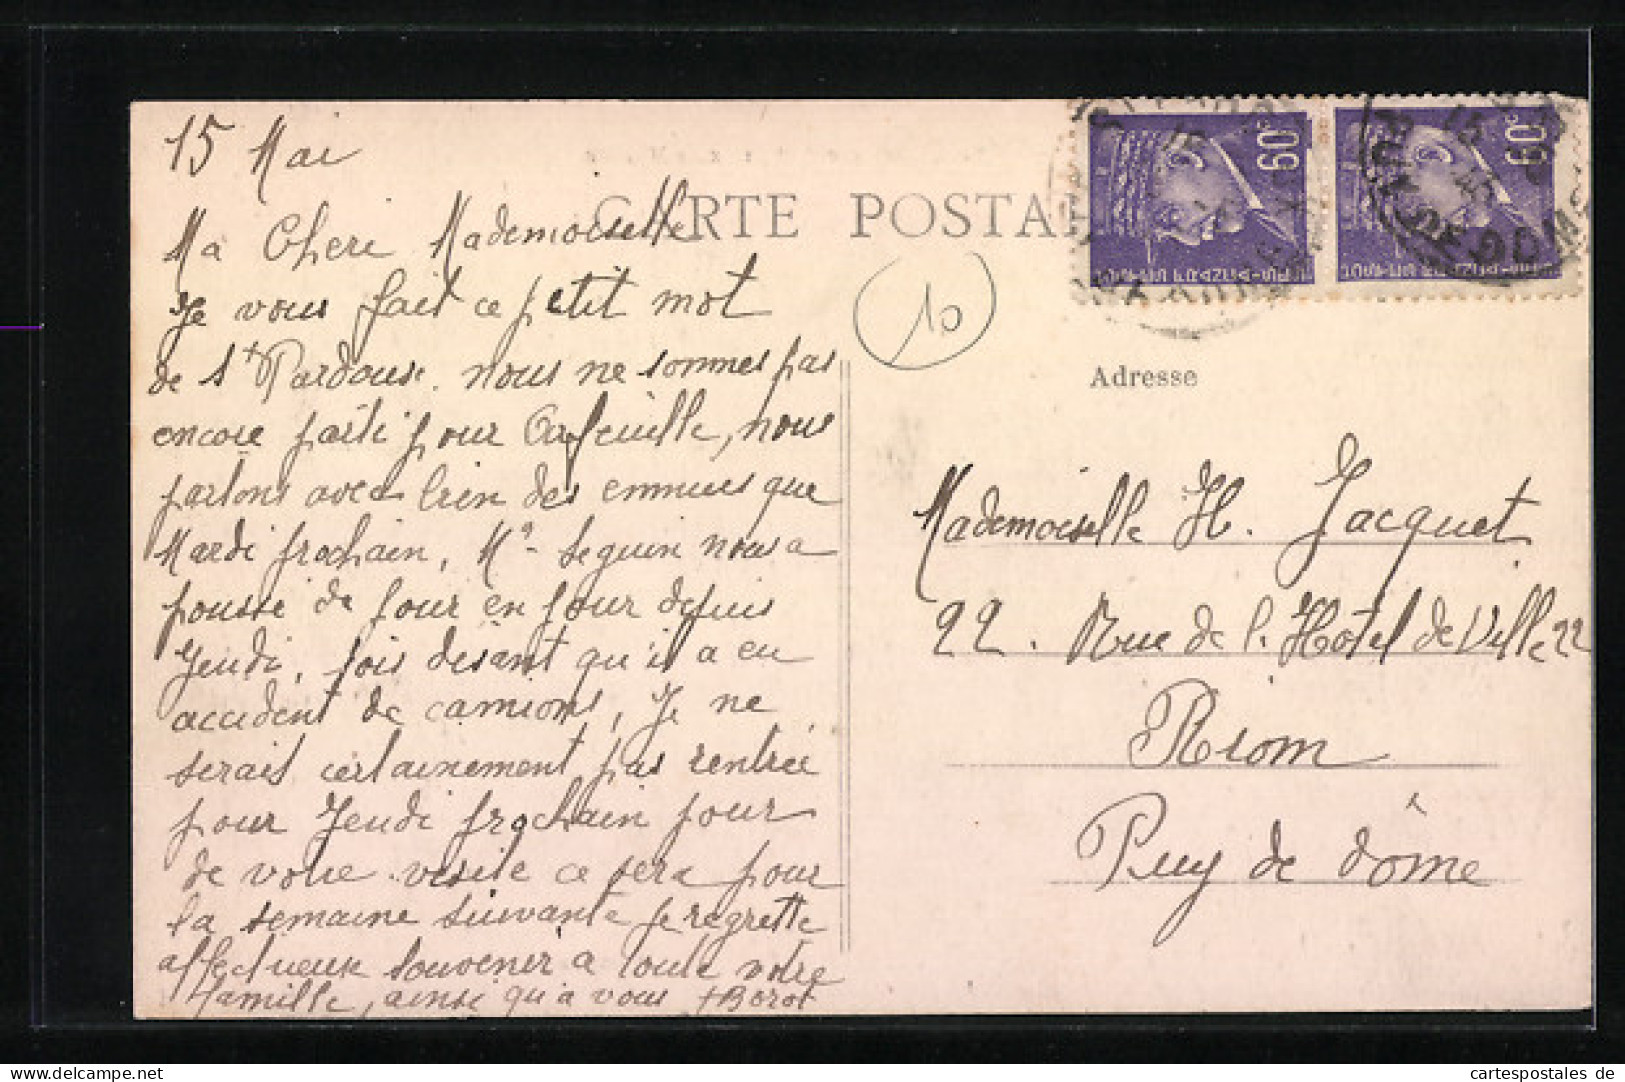 15 Mai
CARTE POSTA
Ma Chere Mademoiselle
Je vous fait ce petit mot
de St Pardoux. nous ne sommes pas
encore parti pour Arfeuille, nous
partons avec bien des ennuies que
Mardi prochain, Mr Seguin nous a
pousse de jour en jour depuis
Jeudi, sois disant qu'il a eu
accident de camions, Je ne
serais certainement pas rentrée
pour Jeudi prochain pour
de votre visite ce sera pour
la semaine suivante je regrette
affectueux souvenir a toute votre
famille, ainsi qu'a vous
10
60c
60c
Adresse
Mademoiselle H. Jacquet
22. Rue de l'Hotel de Ville 22
Riom
Puy de dôme
www.cartespostales.de
cartespostales de